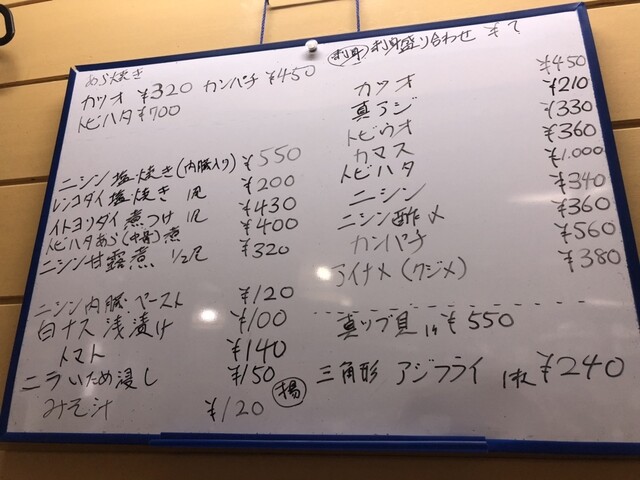 あら焼き
カツオ ¥320 カンパチ ¥450
トビハタ ¥700
ニシン塩焼き(内臓入り) ¥550
レンコダイ塩焼き 1尾 ¥200
イトヨリダイ煮つけ 1尾 ¥430
トビハタあら(中骨)煮 ¥400
ニシン甘露煮 1/2尾 ¥320
ニシン内臓ペースト ¥120
白ナス浅漬け ¥100
トマト ¥140
ニラいため浸し ¥150
みそ汁 ¥120
刺身 刺身盛り合わせ ¥?
カツオ ¥450
真アジ ¥210
トビウオ ¥330
カマス ¥360
トビハタ ¥1.000
ニシン ¥340
ニシン酢〆 ¥360
カンパチ ¥560
アイナメ(クジメ) ¥380
真ツブ貝 1ケ ¥550
揚 三角形 アジフライ 1枚 ¥240